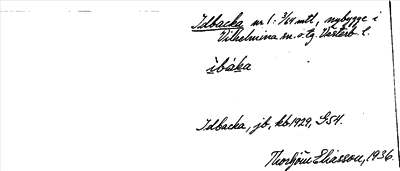 Idbacka nr 1: 3/64 mtl, nybygge i
Vilhelmina sn o. tg. Västerb. l.
ìbàka
Idbacka, jb, kb 1929, G54.
Thorbjörn Eliasson, 1936.